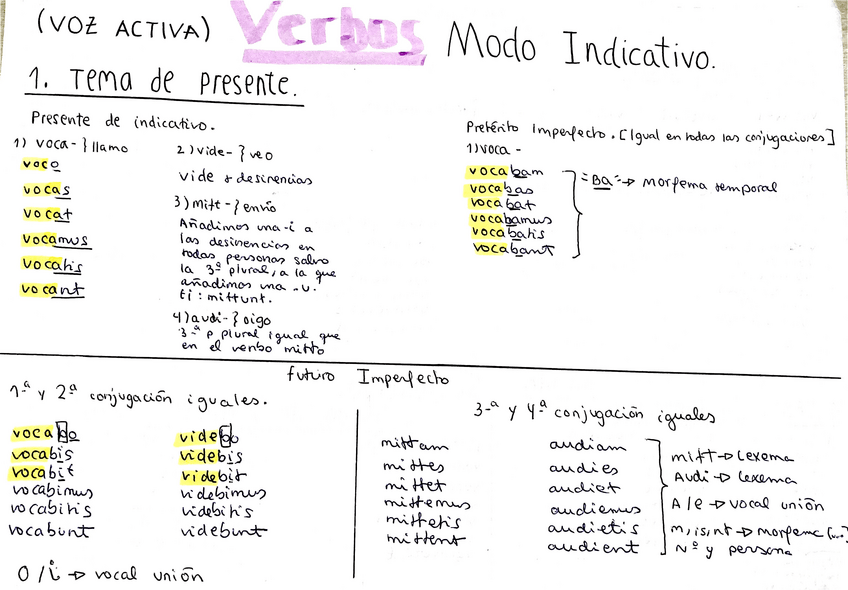 (VOZ ACTIVA) Verbos Modo Indicativo.
1. Tema de presente.
Presente de indicativo.
1) voca- } llamo
voco
vocas
vocat
vocamus
vocatis
vocant
2) vide- } veo
vide + desinencias
3) mitt- } envío
Añadimos una -i a
las desinencias en
todas personas salvo
la 3ª plural, a la que
añadimos una -u.
Ej: mittunt.
4) audi- } oigo
3-ª p plural igual que
en el verbo mitto
Pretérito Imperfecto. [Igual en todas las conjugaciones]
1) voca -
vocabam
vocabas
vocabat
vocabamus
vocabatis
vocabant
"BA" → morfema temporal
futuro Imperfecto
1-ª y 2ª conjugación iguales.
vocabo
vocabis
vocabit
vocabimus
vocabitis
vocabunt
videbo
videbis
videbit
videbimus
videbitis
videbunt
O/i → vocal unión
3-ª y 4ª conjugación iguales
mittam
mittes
mittet
mittemus
mittetis
mittent
audiam
audies
audiet
audiemus
audietis
audient
mitt → Lexema
Audi → Lexema
A/e → vocal unión
m, is, nt → morfema (...)
Nº y persona